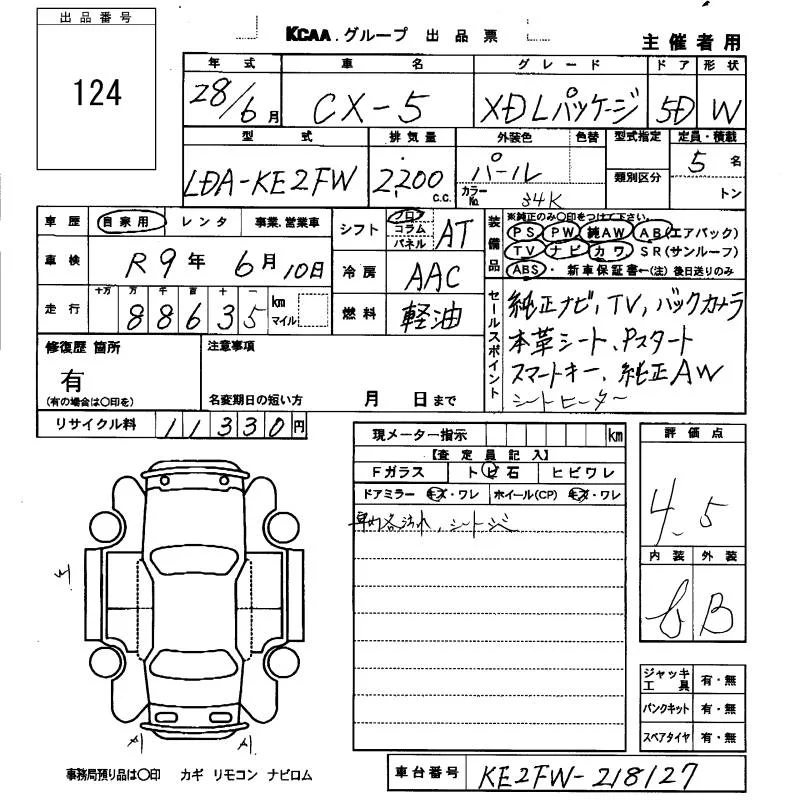 出品番号
124
KCAA.グループ 出品票
主催者用
年式 車名 グレード ドア 形状
28/6月 CX-5 XDLパッケージ 5D W
型式 排気量 外装色 色替 型式指定 定員・積載
LDA-KE2FW 2,200 C.C. パール 類別区分 5名
カラーNo. 34K トン
車歴 自家用 レンタ 事業.営業車
シフト フロア コラム パネル AT
装備品 ※純正のみ〇印をつけて下さい。
PS PW 純AW AB(エアバック)
TV ナビ カワ SR(サンルーフ)
ABS・新車保証書←(注)後日送りのみ
車検 R9年 6月 10日
冷房 AAC
走行 十万 万 千 百 十 一
88635 km マイル
燃料 軽油
セールスポイント
純正ナビ, TV, バックカメラ
本革シート、Pスタート
スマートキー、純正AW
シートヒーター
修復歴 箇所
有
(有の場合は〇印を)
注意事項
名変期日の短い方 月 日まで
リサイクル料 11330円
現メーター指示 km
【査定員記入】
Fガラス トビ石 ヒビワレ
ドアミラー キズ・ワレ ホイール(CP) キズ・ワレ
シート
評価点
4.5
内装 外装
B
ジャッキ工具 有・無
パンクキット 有・無
スペアタイヤ 有・無
事務局預り品は〇印 カギ リモコン ナビロム
車台番号 KE2FW-218127